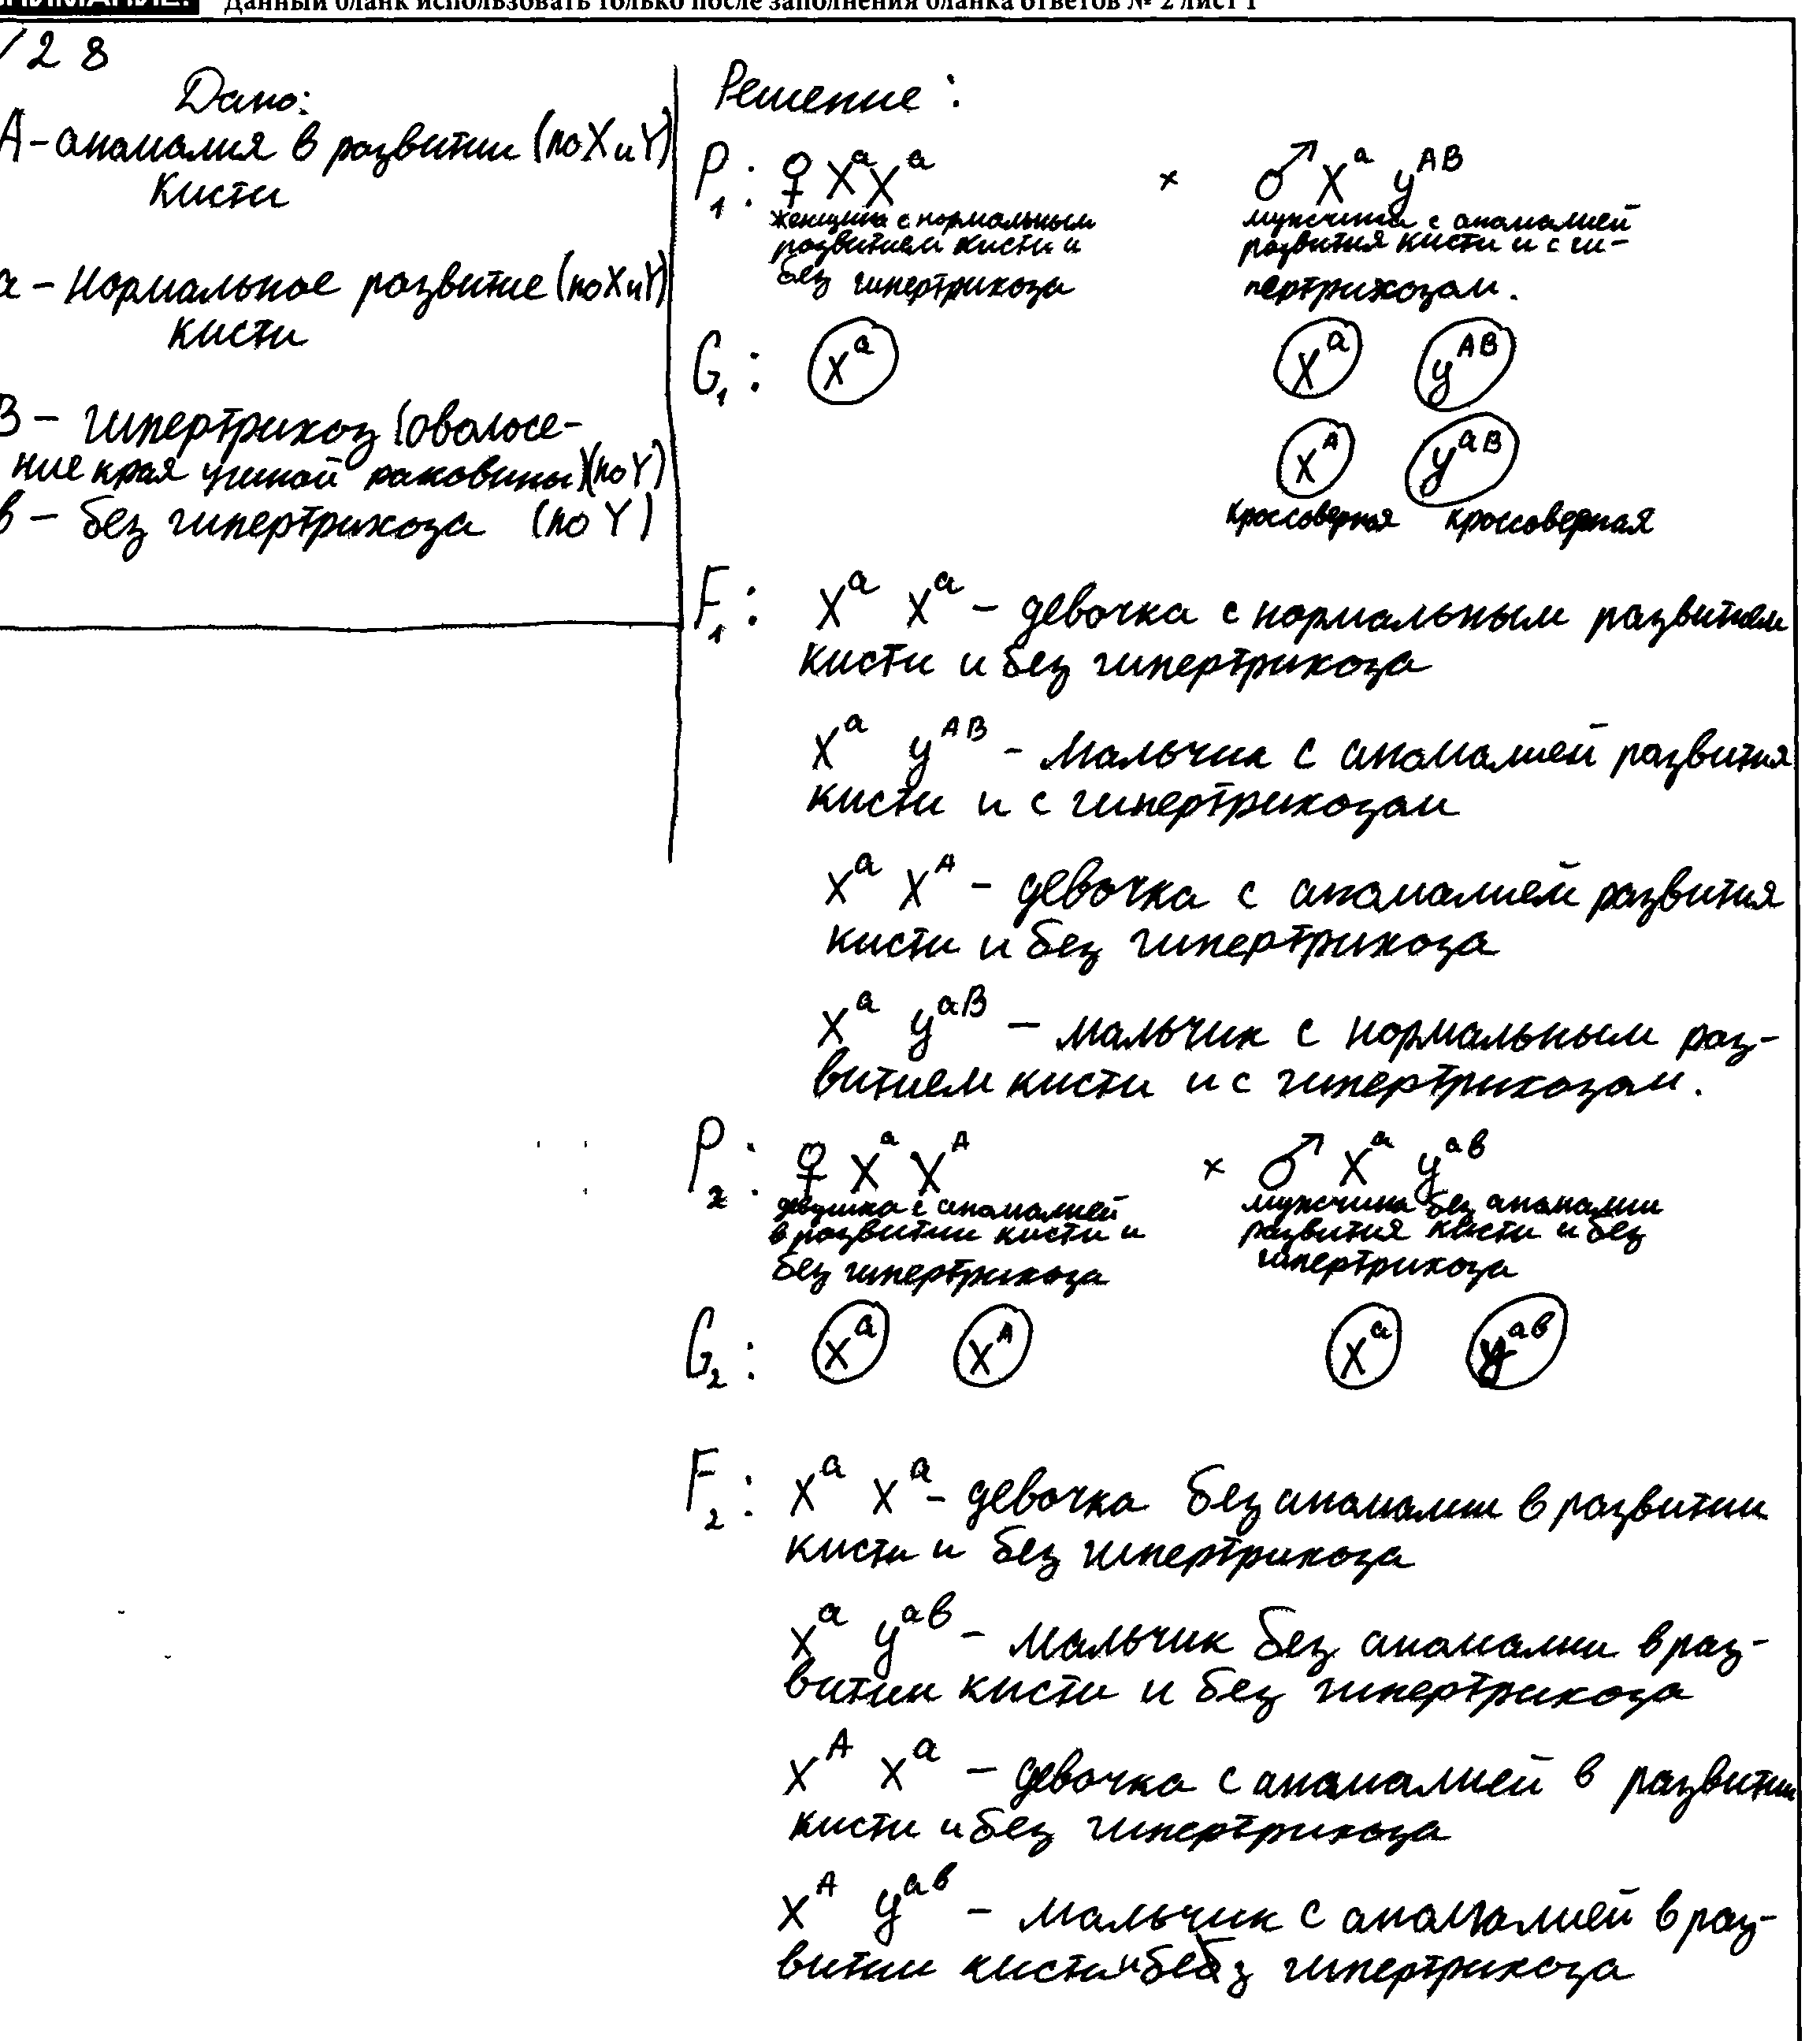 Данный бланк использовать только после заполнения бланка ответов № 2 лист 1
28
Дано:
А - аномалия в развитии (по X и Y)
кисти
а - нормальное развитие (по X и Y)
кисти
В - гипертрихоз (оволосе-
ние края ушной раковины) (по Y)
в - без гипертрихоза (по Y)
Решение:
P₁: ♀ XᵃXᵃ × ♂ Xᵃ yᴬᴮ
женщина с нормальным
развитием кисти и
без гипертрихоза
мужчина с аномалией
развития кисти и с ги-
пертрихозом.
G₁: Xᵃ Xᵃ yᴬᴮ
Xᴬ yᵃᴮ
кроссоверная кроссоверная
F₁: Xᵃ Xᵃ - девочка с нормальным развитием
кисти и без гипертрихоза
Xᵃ yᴬᴮ - мальчик с аномалией развития
кисти и с гипертрихозом
Xᵃ Xᴬ - девочка с аномалией развития
кисти и без гипертрихоза
Xᵃ yᵃᴮ - мальчик с нормальным раз-
витием кисти и с гипертрихозом.
P₂: ♀ Xᵃ Xᴬ × ♂ Xᵃ yᵃᵇ
девушка с аномалией
в развитии кисти и
без гипертрихоза
мужчина без аномалии
развития кисти и без
гипертрихоза
G₂: Xᵃ Xᴬ Xᵃ yᵃᵇ
F₂: Xᵃ Xᵃ - девочка без аномалии в развитии
кисти и без гипертрихоза
Xᵃ yᵃᵇ - мальчик без аномалии в раз-
витии кисти и без гипертрихоза
Xᴬ Xᵃ - девочка с аномалией в развитии
кисти и без гипертрихоза
Xᴬ yᵃᵇ - мальчик с аномалией в раз-
витии кисти и без гипертрихоза